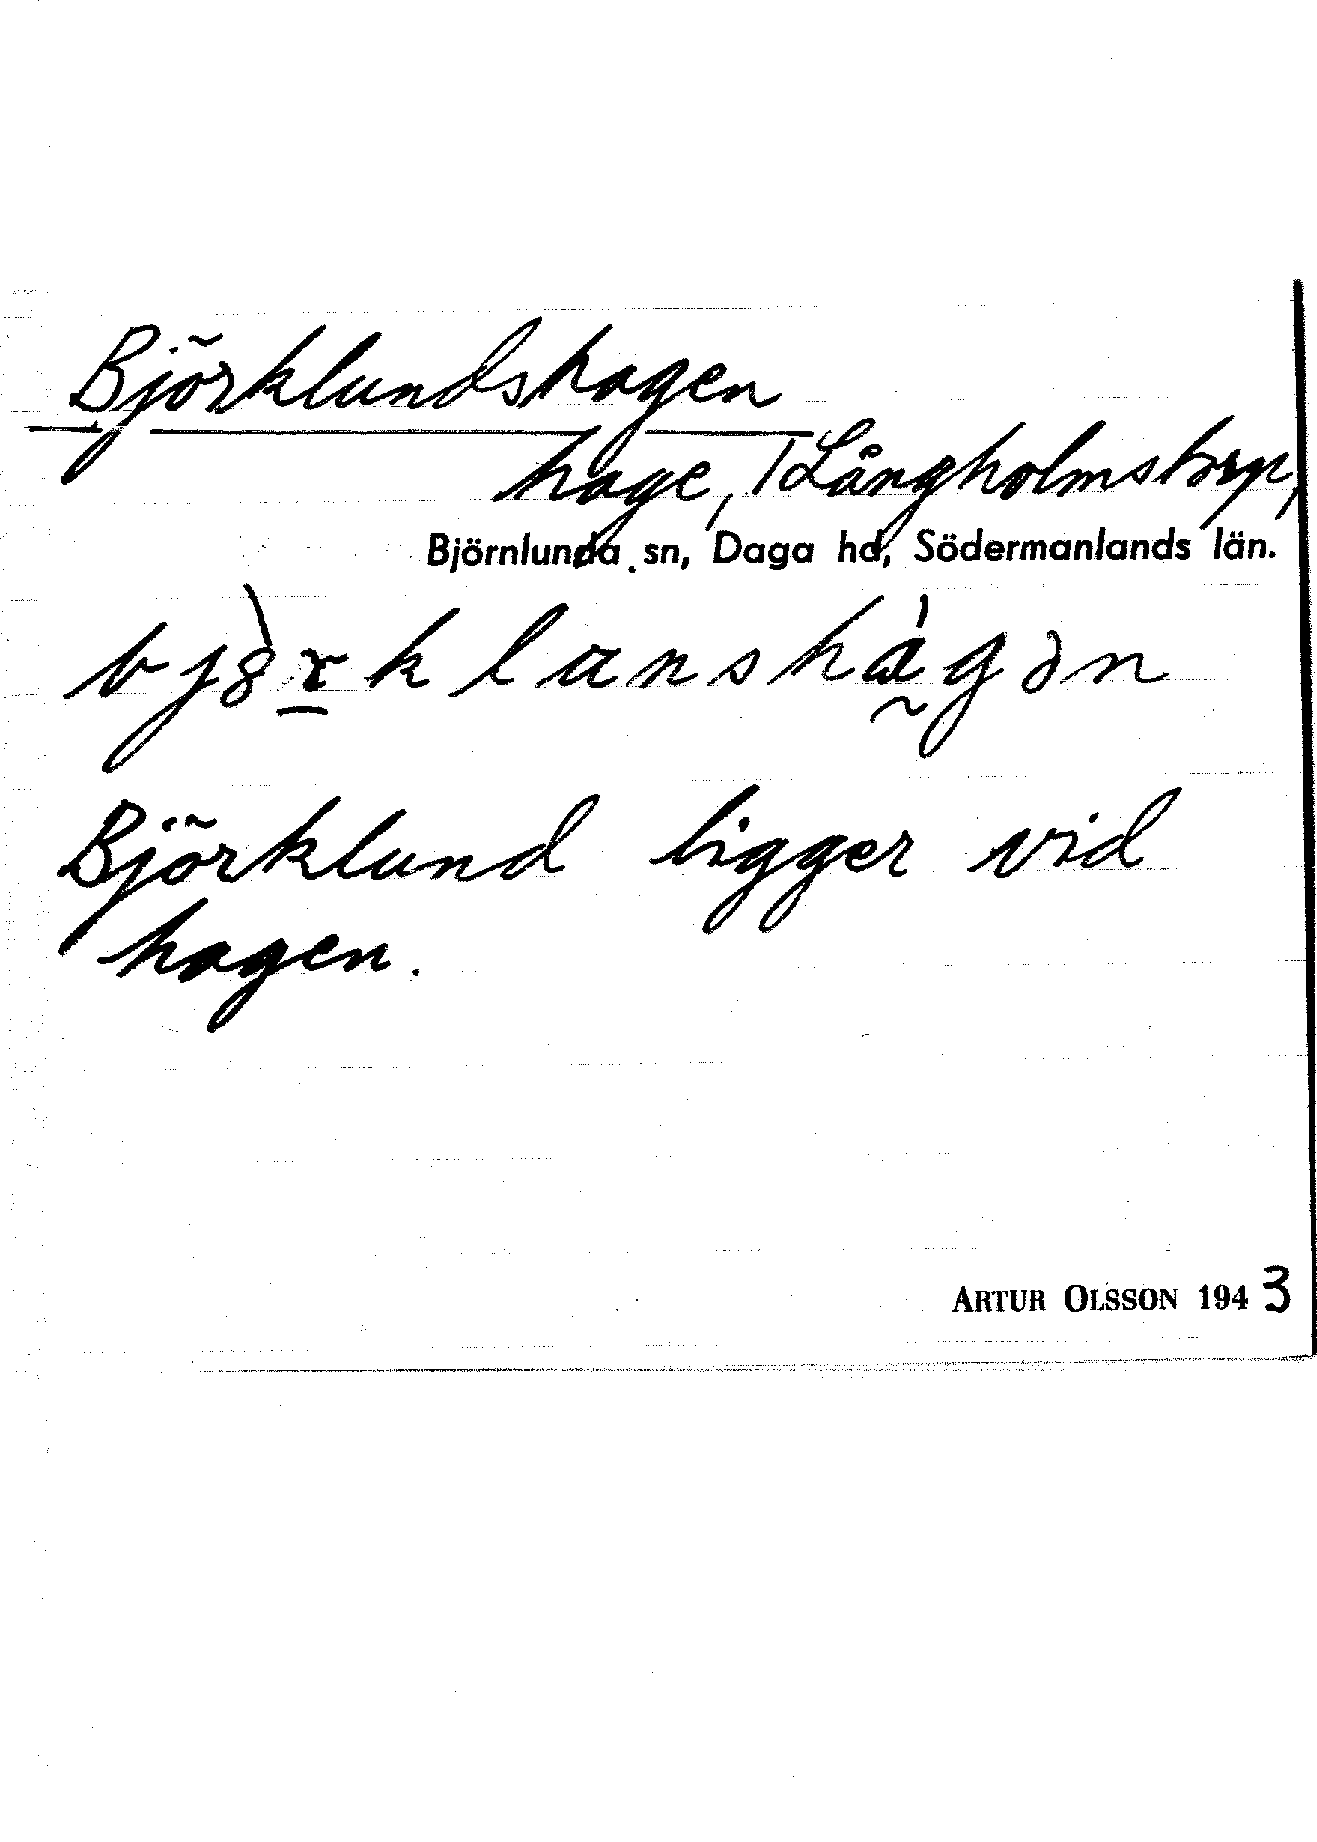 Björklundshagen
hage, 1 Långholmstorp,
Björnlunda sn, Daga hd, Södermanlands län.
bjȣ̀r̠klanshágən
Björklund ligger vid
hagen.
ARTUR OLSSON 1943